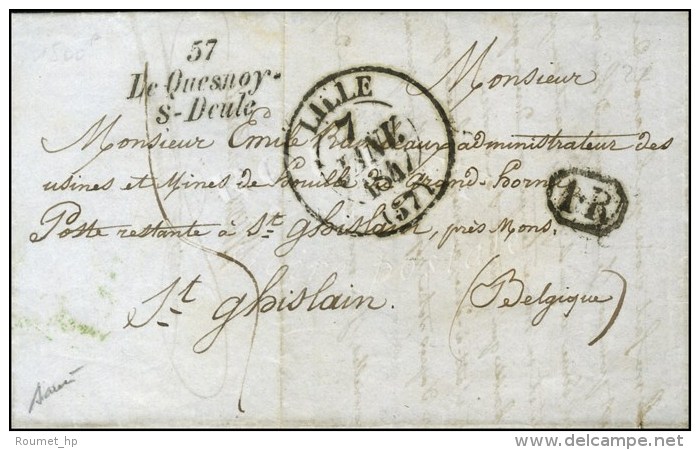 57
Le Quesnoy-
s-Deule
LILLE
7
JANV.
1847
(57)
Monsieur
Monsieur Emile administrateur des
usines et Mines de houille de Grand-hornu
Poste restante à St. ghislain, près Mons.
St ghislain. (Belgique)
1.R.
Roumet_hp
www.delcampe.net